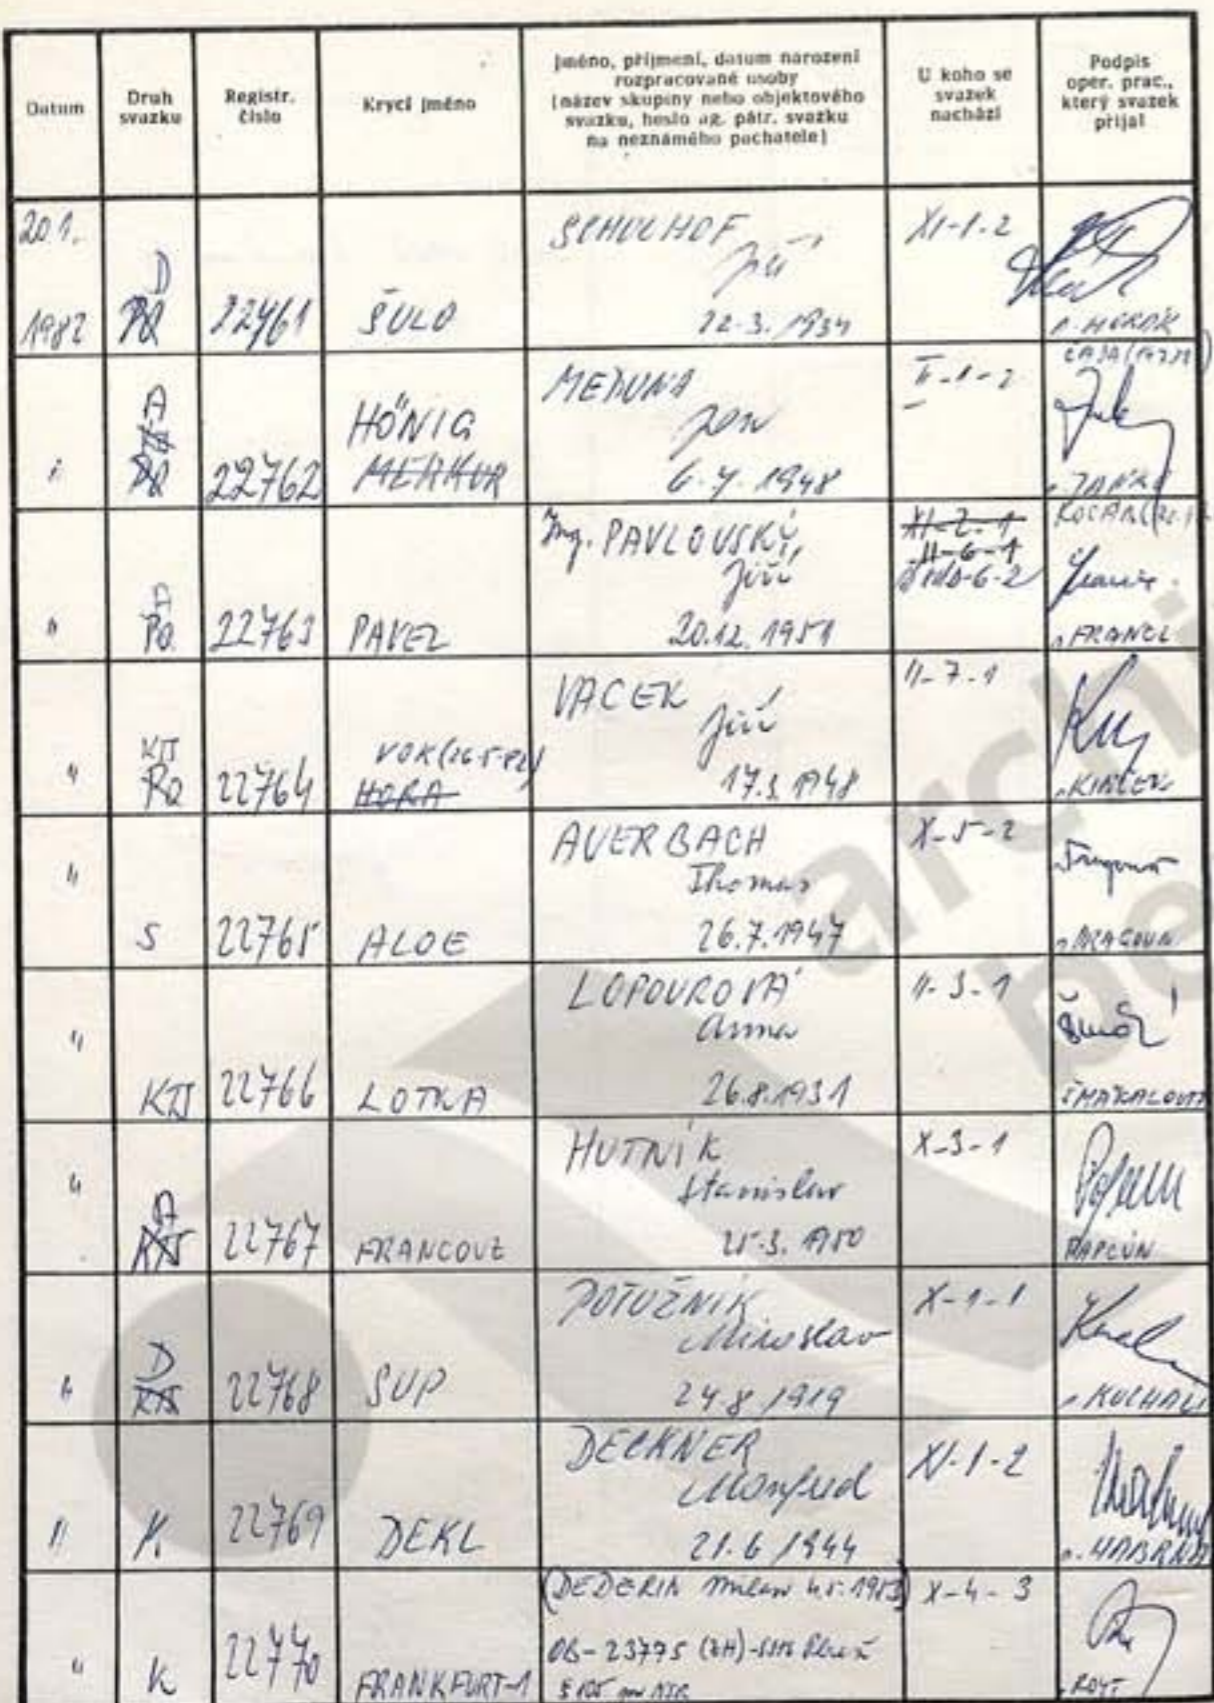 Datum
Druh
svazku
Registr.
číslo
Krycí jméno
Jméno, příjmení, datum narození
rozpracované osoby
(název skupiny nebo objektového
svazku, heslo ag. pátr. svazku
na neznámého pachatele)
U koho se
svazek
nachází
Podpis
oper. prac.,
který svazek
přijal
20.1.
1982
D
PO
22761
ŠULO
SCHULHOF
Jiří
22.3.1934
XI-1-2
"
A
22762
HÖNIG
MERKUR
MEDUNA
Jan
6.4.1948
II-1-2
"
A
PO.
22763
PAVEL
Ing. PAVLOVSKÝ,
Jiří
20.12.1951
XI-2-1
II-6-1
6-2
FRANCL
"
KTS
PO
22764
VOK (26.5.82)
HORA
VACEK
Jiří
17.3.1948
II-7-1
"
S
22765
ALOE
AUERBACH
Thomas
26.7.1947
X-5-2
"
KTS
22766
LOTKA
LOPOUROVÁ
Anna
26.8.1931
II-3-1
"
A
KTS
22767
FRANCOUZ
HUTNÍK
Stanislav
25.3.1950
X-3-1
"
D
KTS
22768
SUP
POTUŽNÍK
Miroslav
24.8.1919
X-1-1
"
K.
22769
DEKL
DECKNER
Manfred
21.6.1944
XI-1-2
"
K
22770
FRANKFURT-1
(DEDERIN Milan 4.5.1953)
OB-23775
§ 105
X-4-3
archi
be